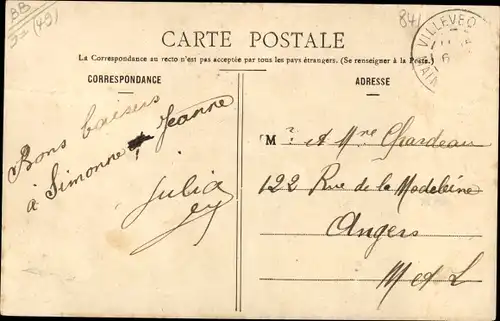 BB
(49)
841
VILLEVEQ
CARTE POSTALE
La Correspondance au recto n'est pas acceptée par tous les pays étrangers. (Se renseigner à la Poste.)
CORRESPONDANCE
ADRESSE
Bons baisers
à Simonne Jeanne
Julia
M r & Mme Chardeau
122 Rue de la Madeleine
Angers
M et L